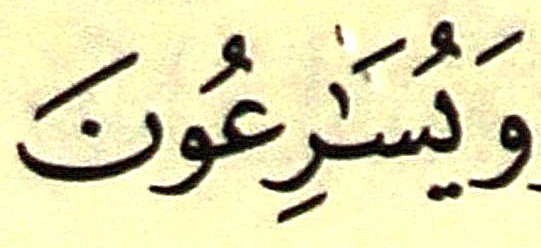 وَيُسَٰرِعُونَ